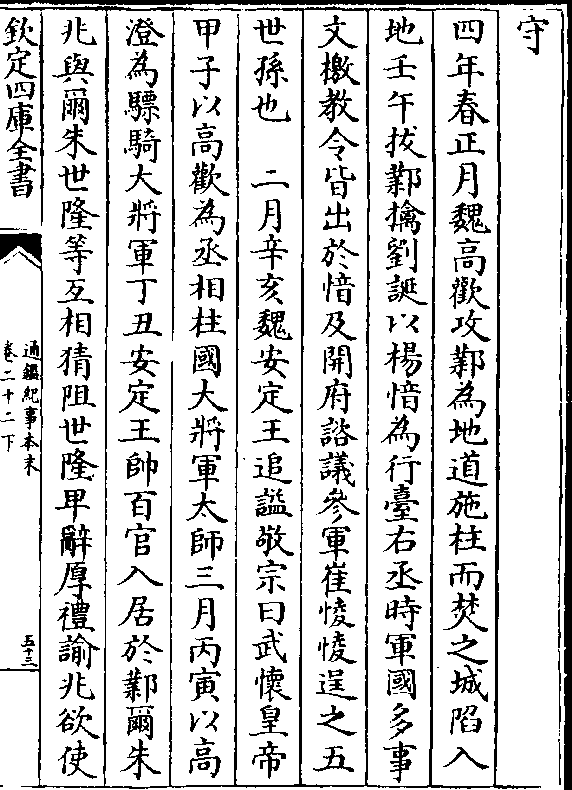 守
四年春正月魏高歡攻鄴為地道施柱而焚之城陷入
地壬午拔鄴擒劉誕以楊愔為行臺右丞時軍國多事
文檄教令皆出於愔及開府諮議參軍崔㥄㥄逞之五
世孫也　二月辛亥魏安定王追謚敬宗曰武懷皇帝
甲子以高歡為丞相柱國大將軍太師三月丙寅以高
澄為驃騎大將軍丁丑安定王帥百官入居於鄴爾朱
兆與爾朱世隆等互相猜阻世隆卑辭厚禮諭兆欲使
欽定四庫全書
通鑑紀事本末
卷二十二下
五十三